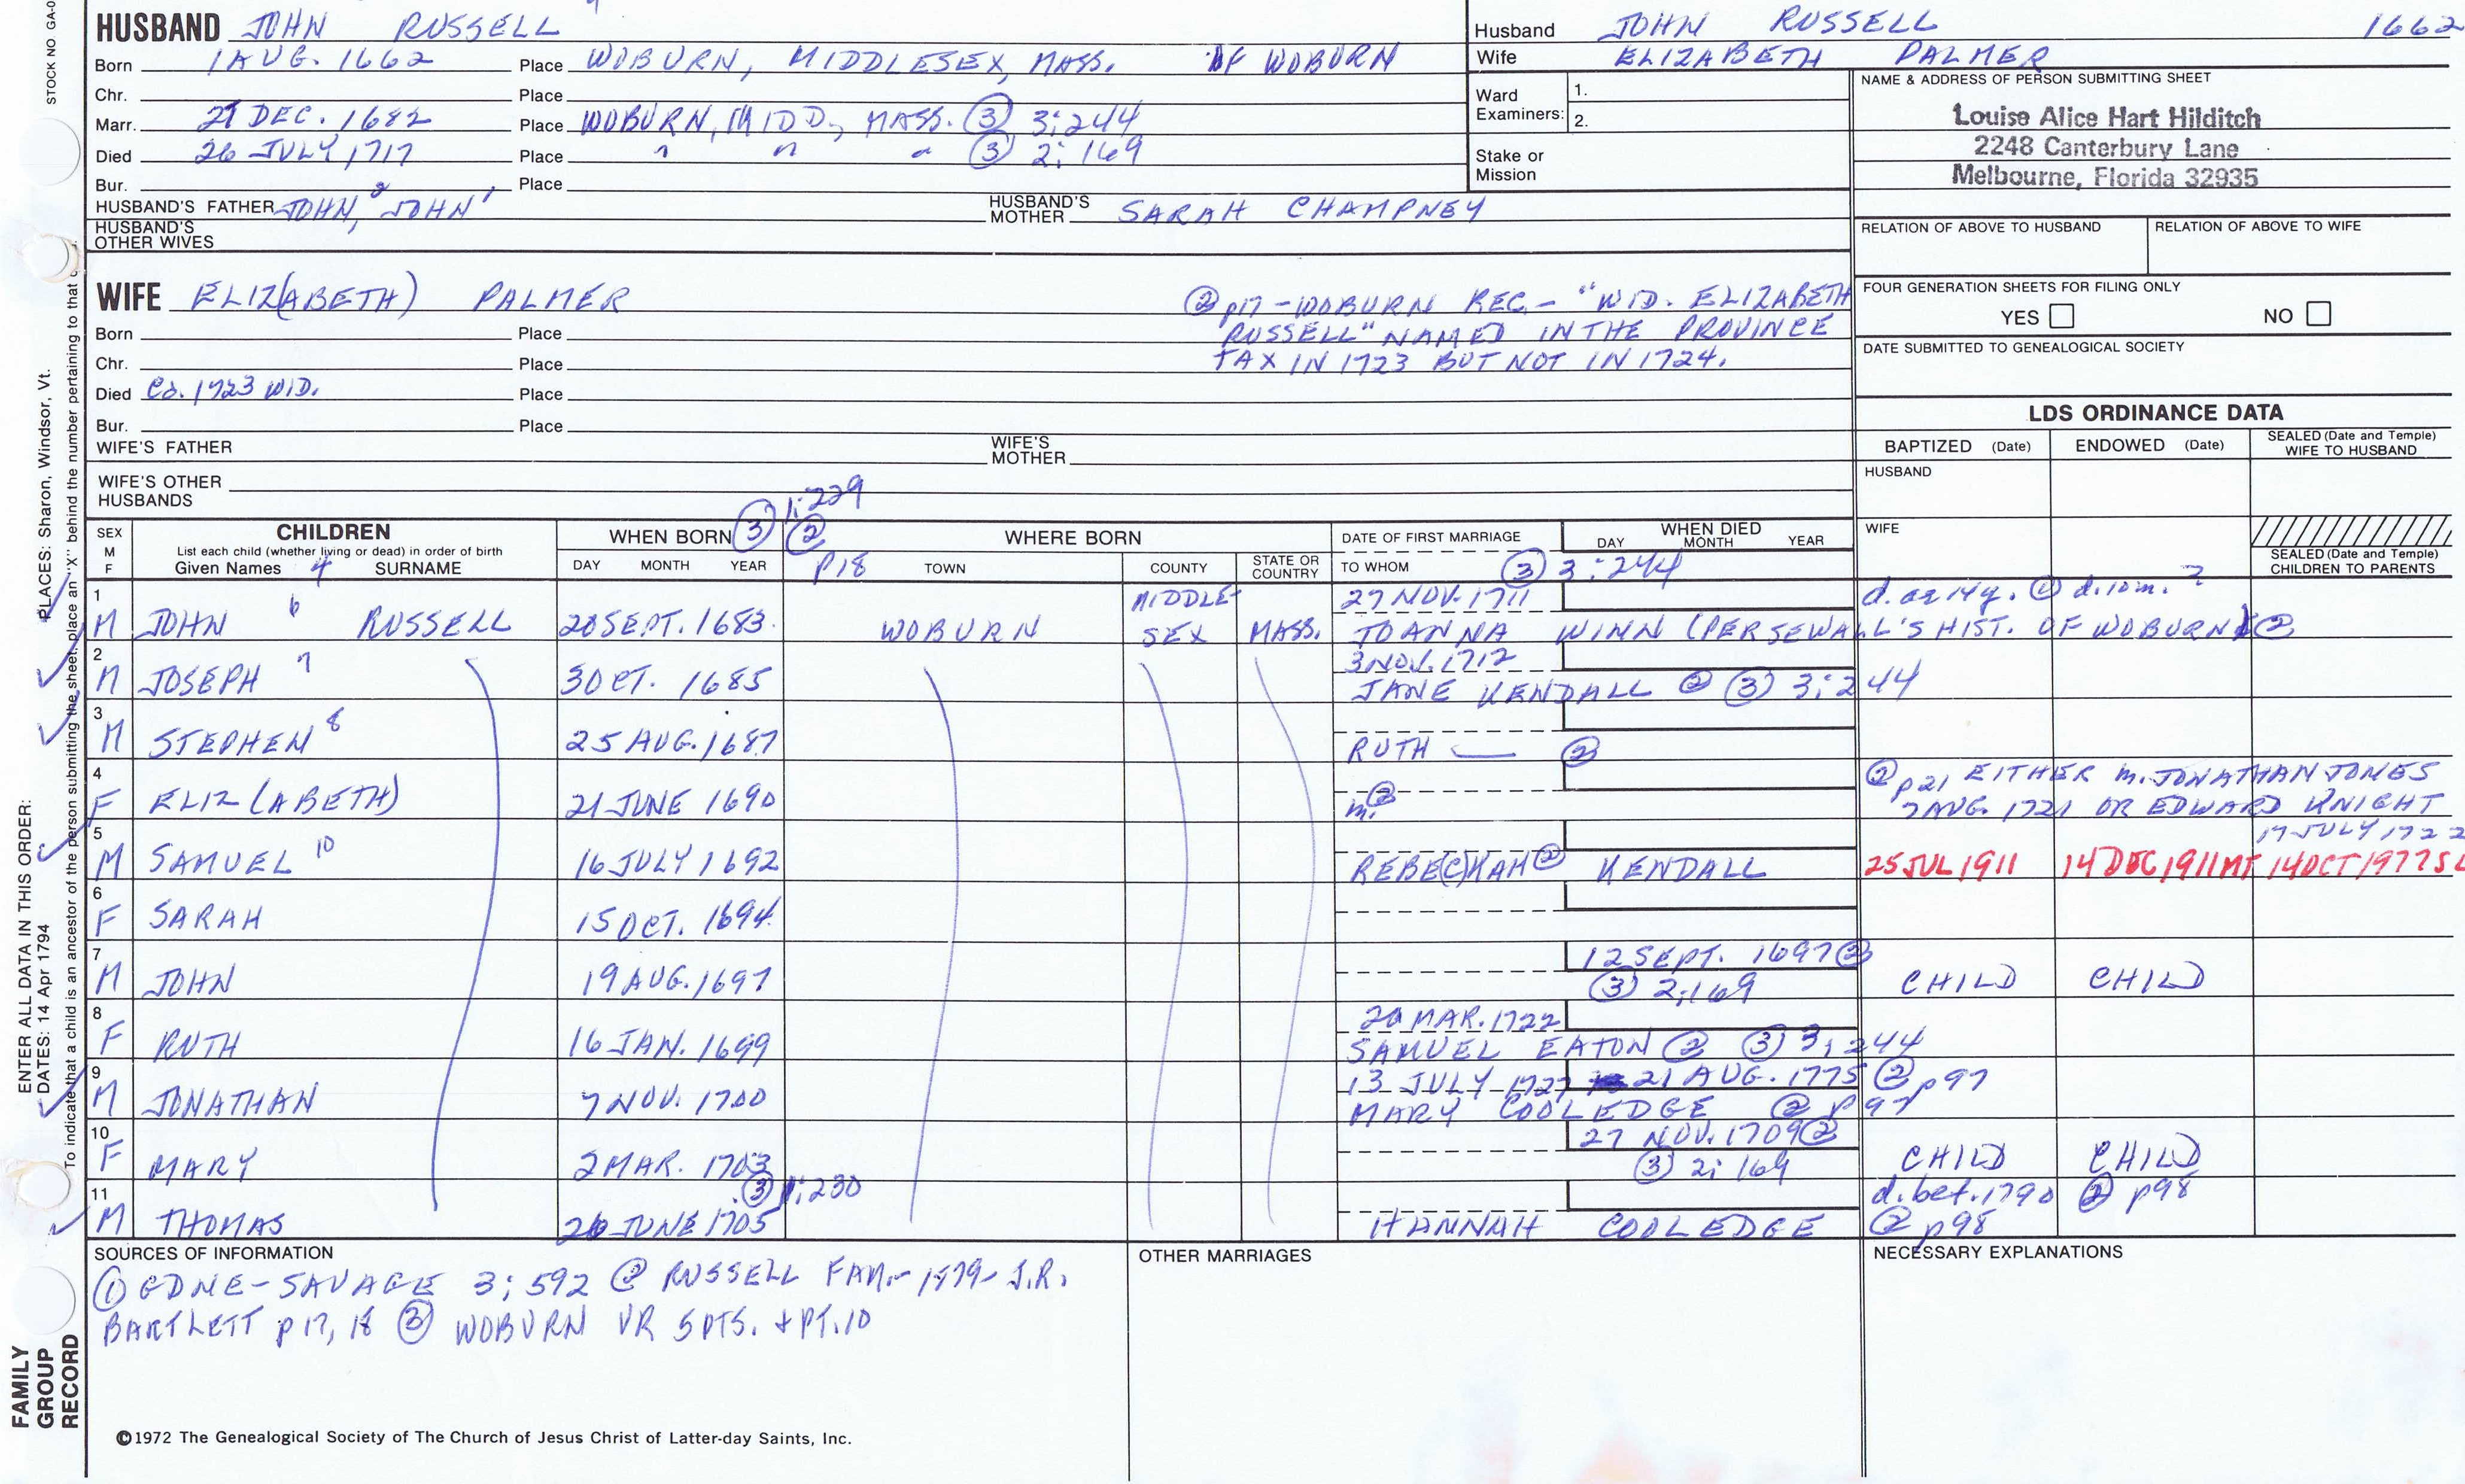 STOCK NO. GA-0
HUSBAND JOHN RUSSELL
Born 1 AUG. 1662 Place WOBURN, MIDDLESEX, MASS. OF WOBURN
Chr. Place
Marr. 21 DEC. 1682 Place WOBURN, MIDD., MASS. ③ 3:244
Died 26 JULY 1717 Place " " " ③ 2:169
Bur. Place
HUSBAND'S FATHER JOHN,² JOHN¹ HUSBAND'S MOTHER SARAH CHAMPNEY
HUSBAND'S OTHER WIVES
Husband JOHN RUSSELL 1662
Wife ELIZABETH PALMER
Ward Examiners: 1.
2.
Stake or Mission
NAME & ADDRESS OF PERSON SUBMITTING SHEET
Louise Alice Hart Hilditch
2248 Canterbury Lane
Melbourne, Florida 32935
RELATION OF ABOVE TO HUSBAND RELATION OF ABOVE TO WIFE
FOUR GENERATION SHEETS FOR FILING ONLY
YES NO
DATE SUBMITTED TO GENEALOGICAL SOCIETY
WIFE ELIZ(ABETH) PALMER
② p17 - WOBURN REC. - "WID. ELIZABETH
RUSSELL" NAMED IN THE PROVINCE
TAX IN 1723 BUT NOT IN 1724.
Born Place
Chr. Place
Died Ca. 1723 WID. Place
Bur. Place
WIFE'S FATHER WIFE'S MOTHER
WIFE'S OTHER HUSBANDS
LDS ORDINANCE DATA
BAPTIZED (Date) ENDOWED (Date) SEALED (Date and Temple) WIFE TO HUSBAND
HUSBAND
WIFE
SEALED (Date and Temple) CHILDREN TO PARENTS
SEX M F
CHILDREN
List each child (whether living or dead) in order of birth
Given Names 4 SURNAME
WHEN BORN ③ 1:229
DAY MONTH YEAR
② P18
WHERE BORN
TOWN COUNTY STATE OR COUNTRY
DATE OF FIRST MARRIAGE
TO WHOM ③ 3:244
WHEN DIED
DAY MONTH YEAR
1 M JOHN 6 RUSSELL 20 SEPT. 1683 WOBURN MIDDLESEX MASS. 27 NOV. 1711 d. ae 14y. ② d. 10m. ?
JOANNA WINN (PER SEWALL'S HIST. OF WOBURN) ②
2 M JOSEPH 7 3 OCT. 1685 3 NOV. 1712
JANE KENDALL ② ③ 3:244
3 M STEPHEN 8 25 AUG. 1687 RUTH — ②
4 F ELIZ(ABETH) 21 JUNE 1690 m. ② ② p21 EITHER m. JONATHAN JONES
7 AUG. 1721 OR EDWARD KNIGHT
17 JULY 1722
5 M SAMUEL 10 16 JULY 1692 REBE(C)KAH ② KENDALL 25 JUL 1911 14 DEC 1911 MT 14 OCT 1977 SL
6 F SARAH 15 OCT. 1694
7 M JOHN 19 AUG. 1697 12 SEPT. 1697 ②
③ 2:169 CHILD CHILD
8 F RUTH 16 JAN. 1699 20 MAR. 1722
SAMUEL EATON ② ③ 3:244
9 M JONATHAN 7 NOV. 1700 13 JULY 1727 21 AUG. 1775 ② p97
MARY COOLEDGE ② p97
10 F MARY 2 MAR. 1703 27 NOV. 1709 ②
③ 2:169 CHILD CHILD
③ 1:230
11 M THOMAS 26 JUNE 1705 d. bet. 1790 ② p98
HANNAH COOLEDGE ② p98
SOURCES OF INFORMATION
① GDNE - SAVAGE 3:592 ② RUSSELL FAM. - 1879 - J.R.
BARTLETT p 17, 18 ③ WOBURN VR 5 PTS. + PT. 10
OTHER MARRIAGES
NECESSARY EXPLANATIONS
©1972 The Genealogical Society of The Church of Jesus Christ of Latter-day Saints, Inc.
FAMILY GROUP RECORD
ENTER ALL DATA IN THIS ORDER:
DATES: 14 Apr 1794
PLACES: Sharon, Windsor, Vt.
To indicate that a child is an ancestor of the person submitting the sheet, place an "X" behind the number pertaining to that c